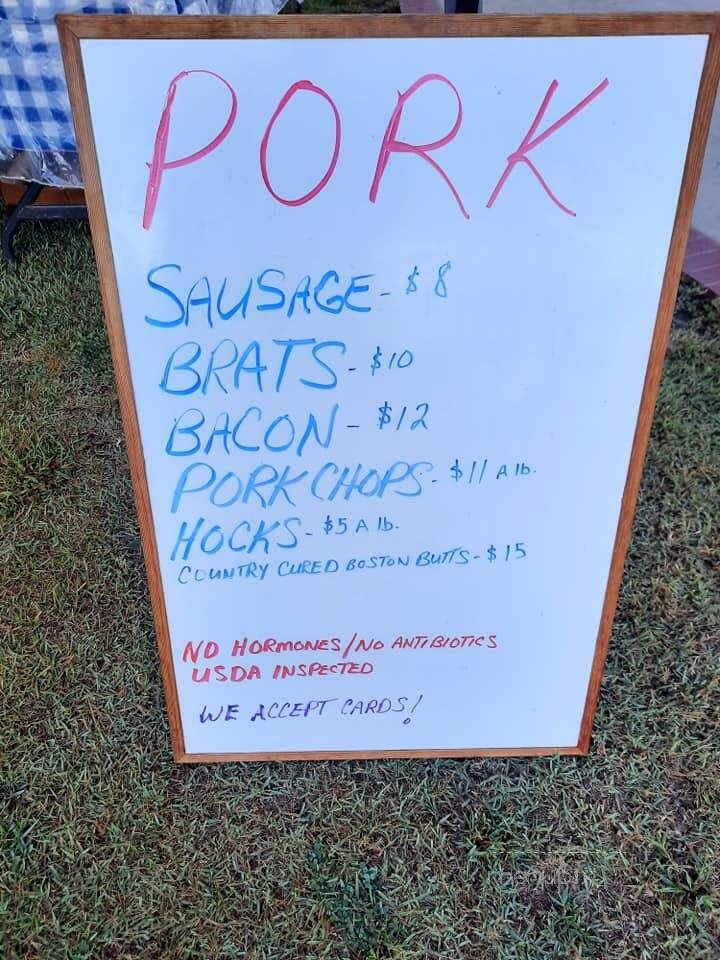 PORK
SAUSAGE - $8
BRATS - $10
BACON - $12
PORK CHOPS - $11 A lb.
HOCKS - $5 A lb.
COUNTRY CURED BOSTON BUTTS - $15
NO HORMONES/NO ANTIBIOTICS
USDA INSPECTED
WE ACCEPT CARDS!